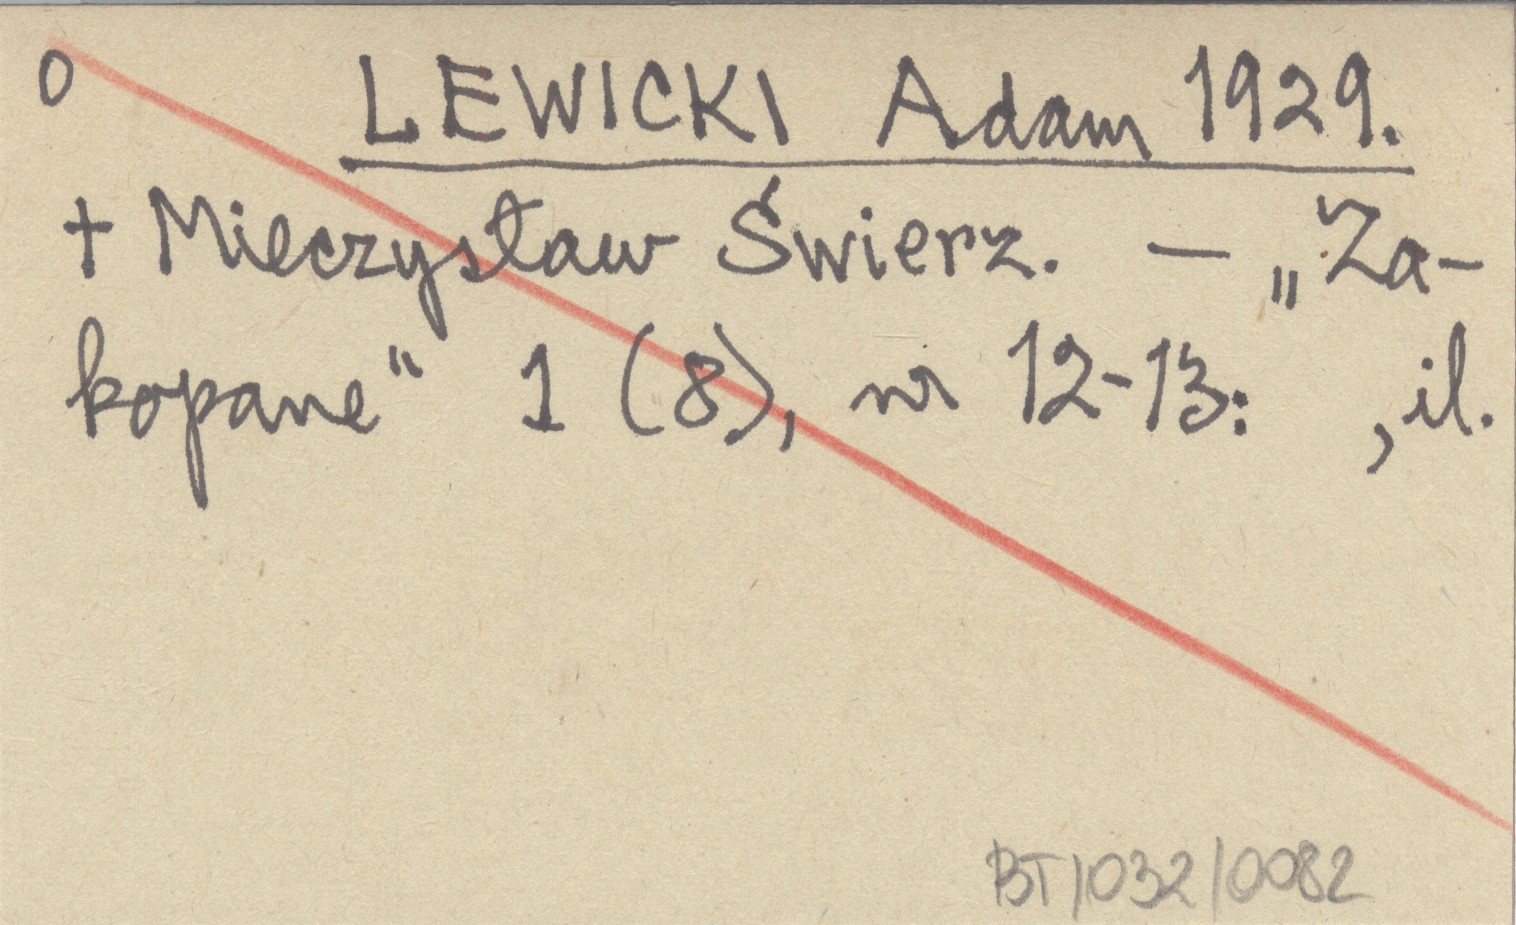 0 LEWICKI Adam 1929.
+ Mieczysław Świerz. – „Za-
kopane" 1 (8), nr 12-13: , il.
BT/032/0082